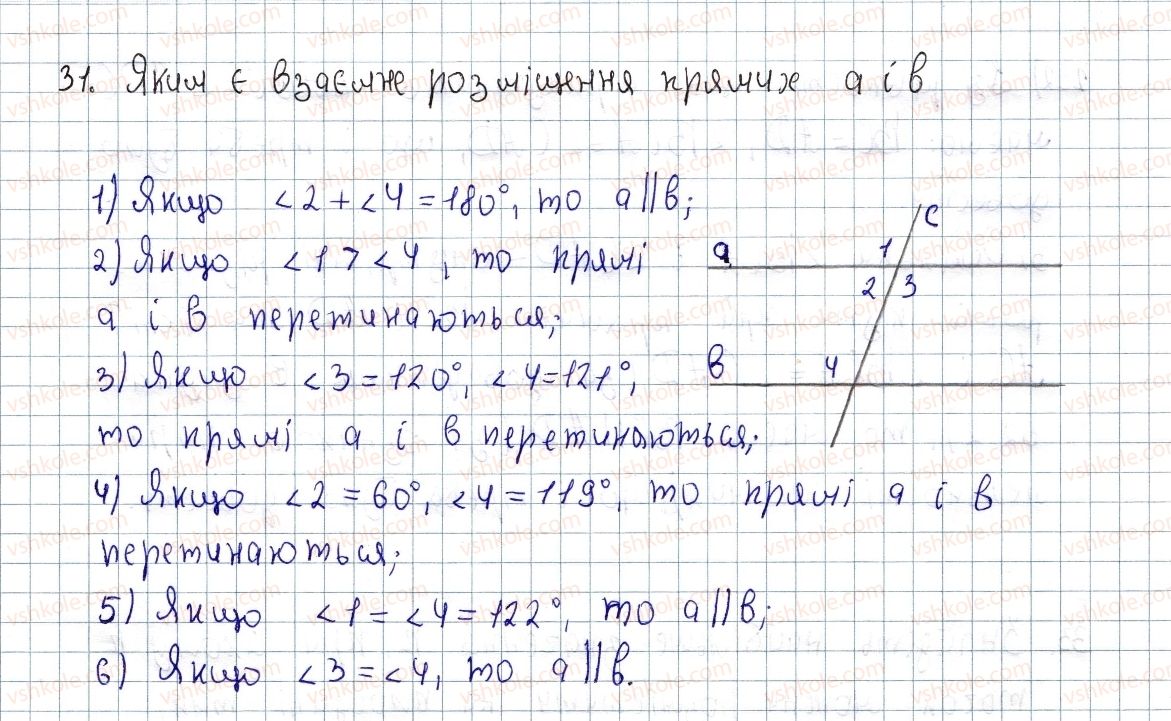 31. Яким є взаємне розміщення прямих а і в
1) Якщо <2 + <4 = 180°, то а || в;
2) Якщо <1 > <4, то прямі
а і в перетинаються;
3) Якщо <3 = 120°, <4 = 121°,
то прямі а і в перетинаються;
4) Якщо <2 = 60°, <4 = 119°, то прямі а і в
перетинаються;
5) Якщо <1 = <4 = 122°, то а || в;
6) Якщо <3 = <4, то а || в.
c
а 1
2 3
в 4
vshkole.com